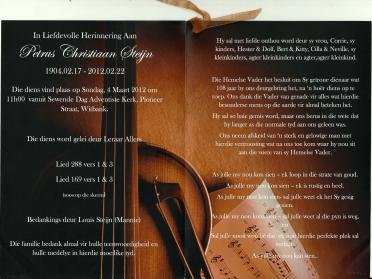 In Liefdevolle Herinnering Aan
Petrus Christiaan Steijn
1904.02.17 - 2012.02.22
Die diens vind plaas op Sondag, 4 Maart 2012 om
11h00 vanuit Sewende Dag Adventiste Kerk, Pioneer
Straat, Witbank.
Die diens word gelei deur Leraar Allers
Lied 288 vers 1 & 3
Lied 169 vers 1 & 3
(soos op die skerm)
Bedankings deur Louis Steijn (Mannie)
Die familie bedank almal vir hulle teenwoordigheid en
hulle medelye in hierdie moeilike tyd.
Hy sal met liefde onthou word deur sy vrou, Corrie, sy
kinders, Hester & Dolf, Bert & Kitty, Cilla & Neville, sy
kleinkinders, agter kleinkinders en agter,agter kleinkind.
Die Hemelse Vader het besluit om Sy getroue dienaar wat
108 jaar by ons deurgebring het, na 'n hoër diens op te
roep. Ons dank die Vader van genade vir alles wat hierdie
besonderse mens op die aarde vir almal beteken het.
Hy sal so baie gemis word, maar ons berus in die wete dat
hy langer as die normale tyd aan ons geleen was.
Ons neem afskeid van 'n sterk en gelowige man met
hierdie vertroosting wat na ons toe kom waar hy nou sit
aan die voete van sy Hemelse Vader.
As julle my nou kon sien – ek loop in die strate van goud.
As julle my nou kon sien – ek is rustig en heel.
As julle my nou kon sien- sal julle weet ek het Sy gesig
gesien.
As julle my nou kon sien – sal julle weet al die pyn is weg,
en
Sal julle nooit wou hê dat ek ooit hierdie perfekte plek sal
verlaat
As julle my nou kon sien...